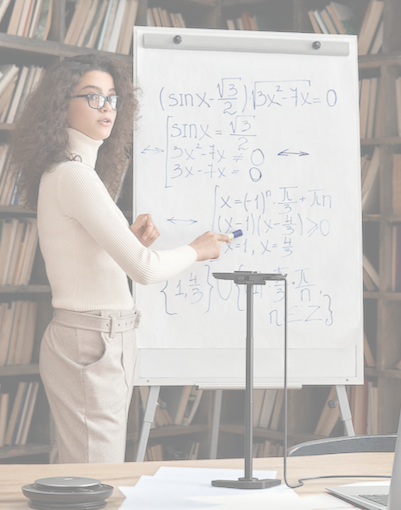 (sinx-√3/2)√3x²-7x=0
sinx=√3/2
3x²-7x≠0
3x²-7x=0
x=(-1)ⁿ·π/3+πn
(x-1)(x-4/3)≥0
x=1, x=4/3
{1,4/3}∪{
n∈Z}